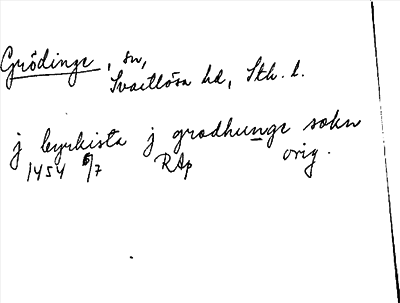 Grödinge, sn,
Svartlösa hd, Sth. l.
j byrkista j grodhunge sokn
1454 5/7 RAp orig.